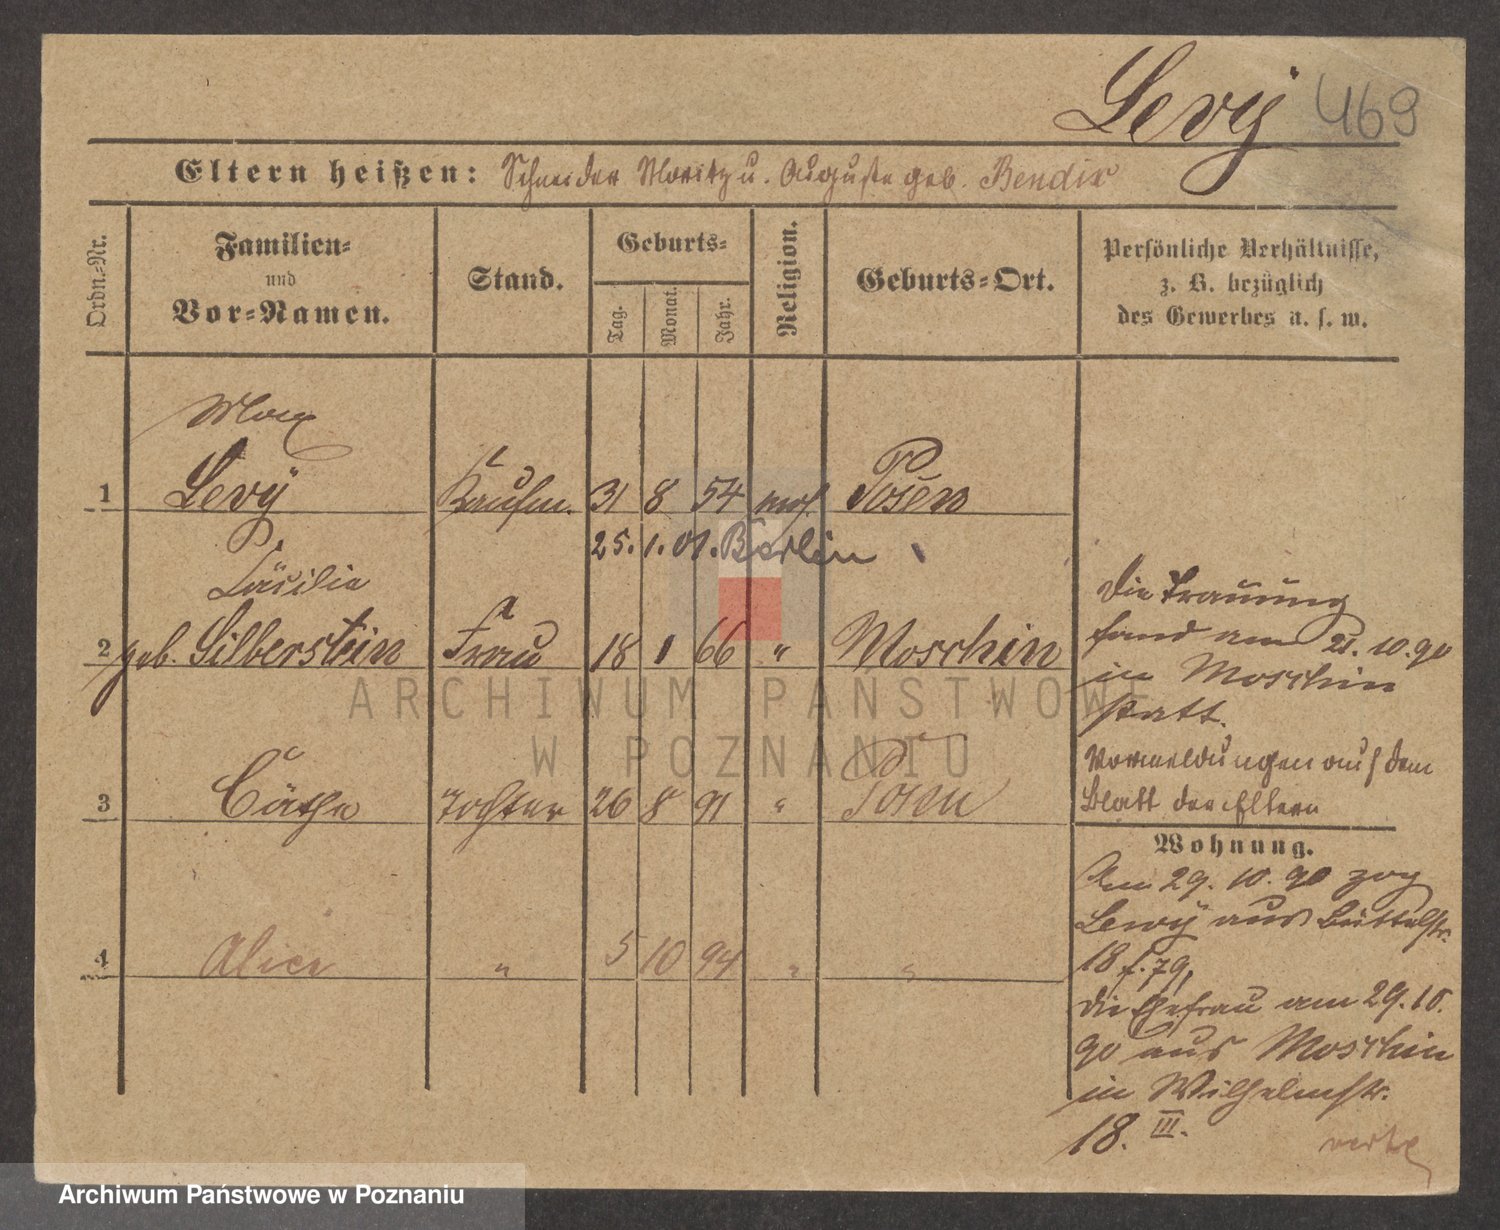 Levÿ 469
Eltern heißen: Schneider Moritz u. Auguste geb. Bendix
Ordn.-Nr.
Familien-
und
Vor-Namen.
Stand.
Geburts-
Tag.
Monat.
Jahr.
Religion.
Geburts-Ort.
Persönliche Verhältnisse,
z. B. bezüglich
des Gewerbes u. s. w.
Max
1 Levÿ Kaufm. 31 8 54 mos. Posen
25. 1. 01. Berlin
Cäcilie
2 geb. Silberstein Frau 18 1 66 " Moschin
3 Cäthe Tochter 26 8 91 " Posen
4 Alice " 5 10 94 " "
Die Trauung
fand am 21. 10. 90
in Moschin
statt.
Vormeldungen auf dem
Blatt der Eltern
Wohnung.
Am 29. 10. 90 zog
Levÿ aus Büttelstr.
18 f. 79,
die Ehefrau am 29. 10.
90 aus Moschin
in Wilhelmstr.
18. III.
ARCHIWUM PAŃSTWOWE
W POZNANIU
Archiwum Państwowe w Poznaniu